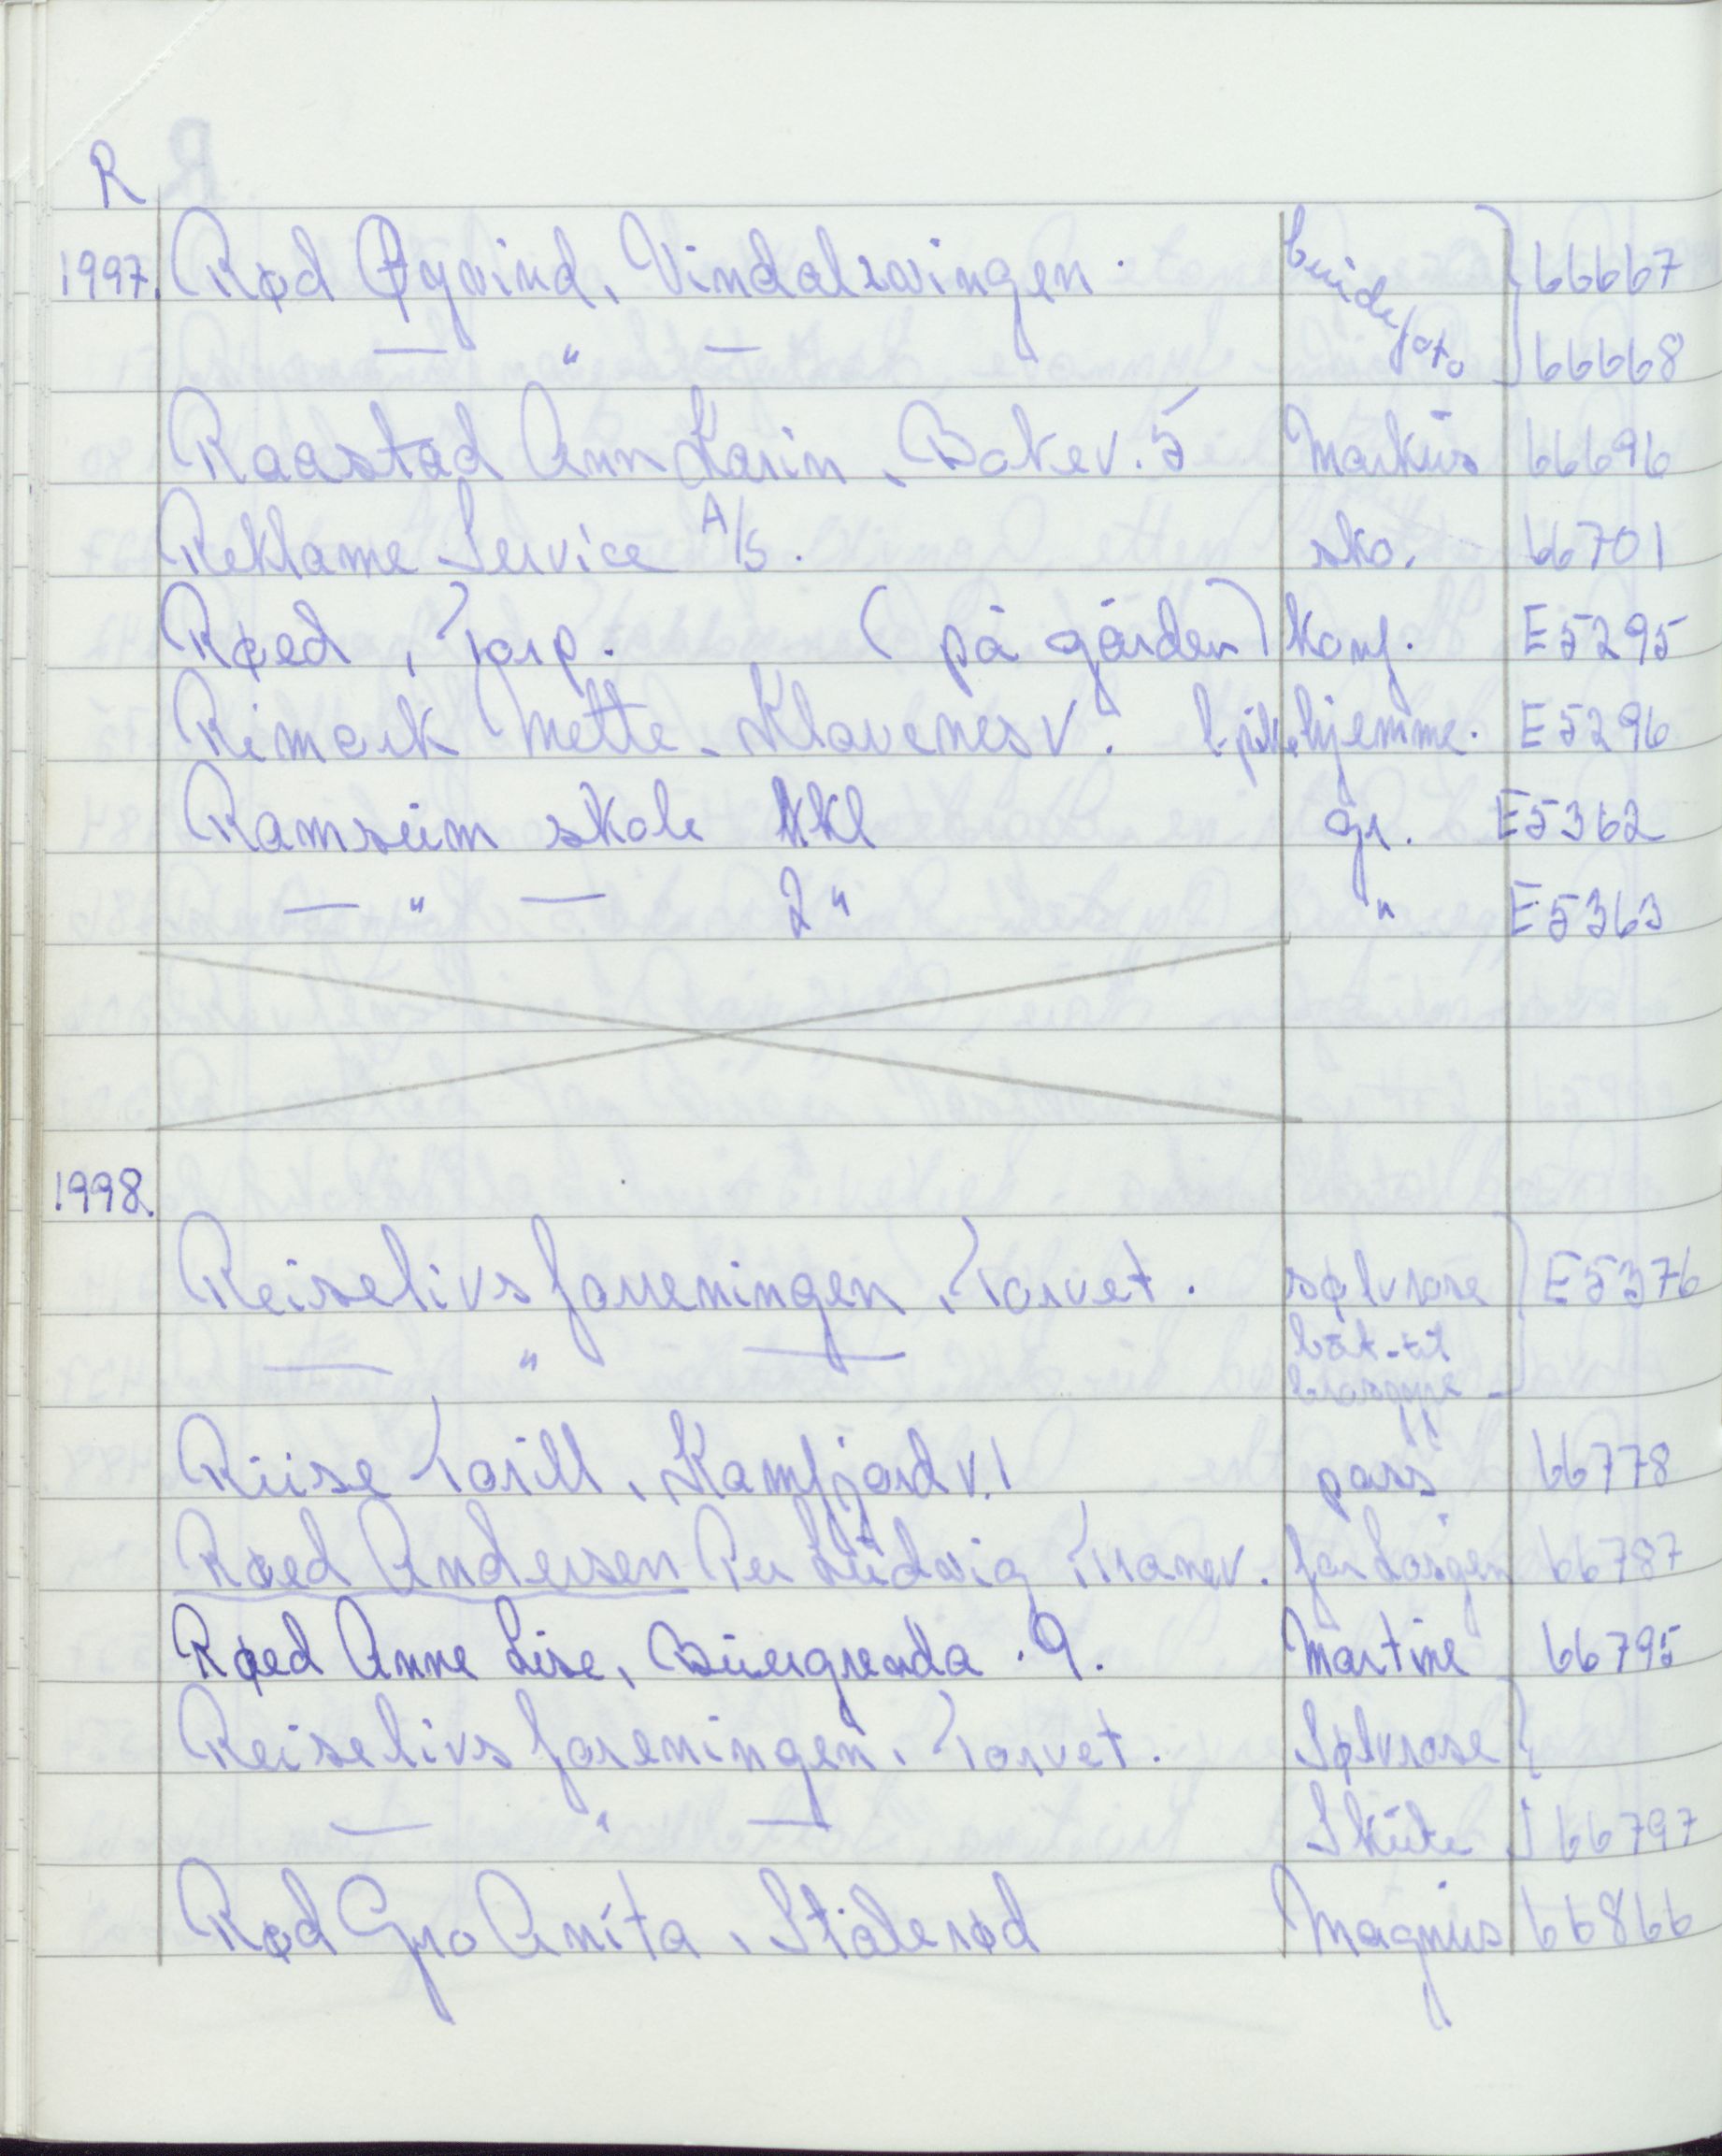 R
1997. Rød Øyvind, Vindalsvingen. brudefoto } 66667
— " — } 66668
Raastad Ann Karin, Bakev. 5 Markus 66696
Reklame Service A/S. sko. 66701
Røed, Torp. (på gården) konf. E5295
Rimark Mette. Klavenesv. hjemme. E5296
Ramsum skole 1kl gr. E5362
— " — 2 " " E5363
1998.
Reiselivsforreningen, Torvet. sølvrose } E5376
— " — båt-til
Riise Torill, Kamfjordv. 1 pass 66778
Røed Andersen Per Ludvig Tranev. 66787
Røed Anne Lise, Buergrenda. 9. Martine 66795
Reiselivsforeningen, Torvet. Sølvrose }
— " — Skute } 66797
Rød Gro Anita, Stålerød Magnus 66866